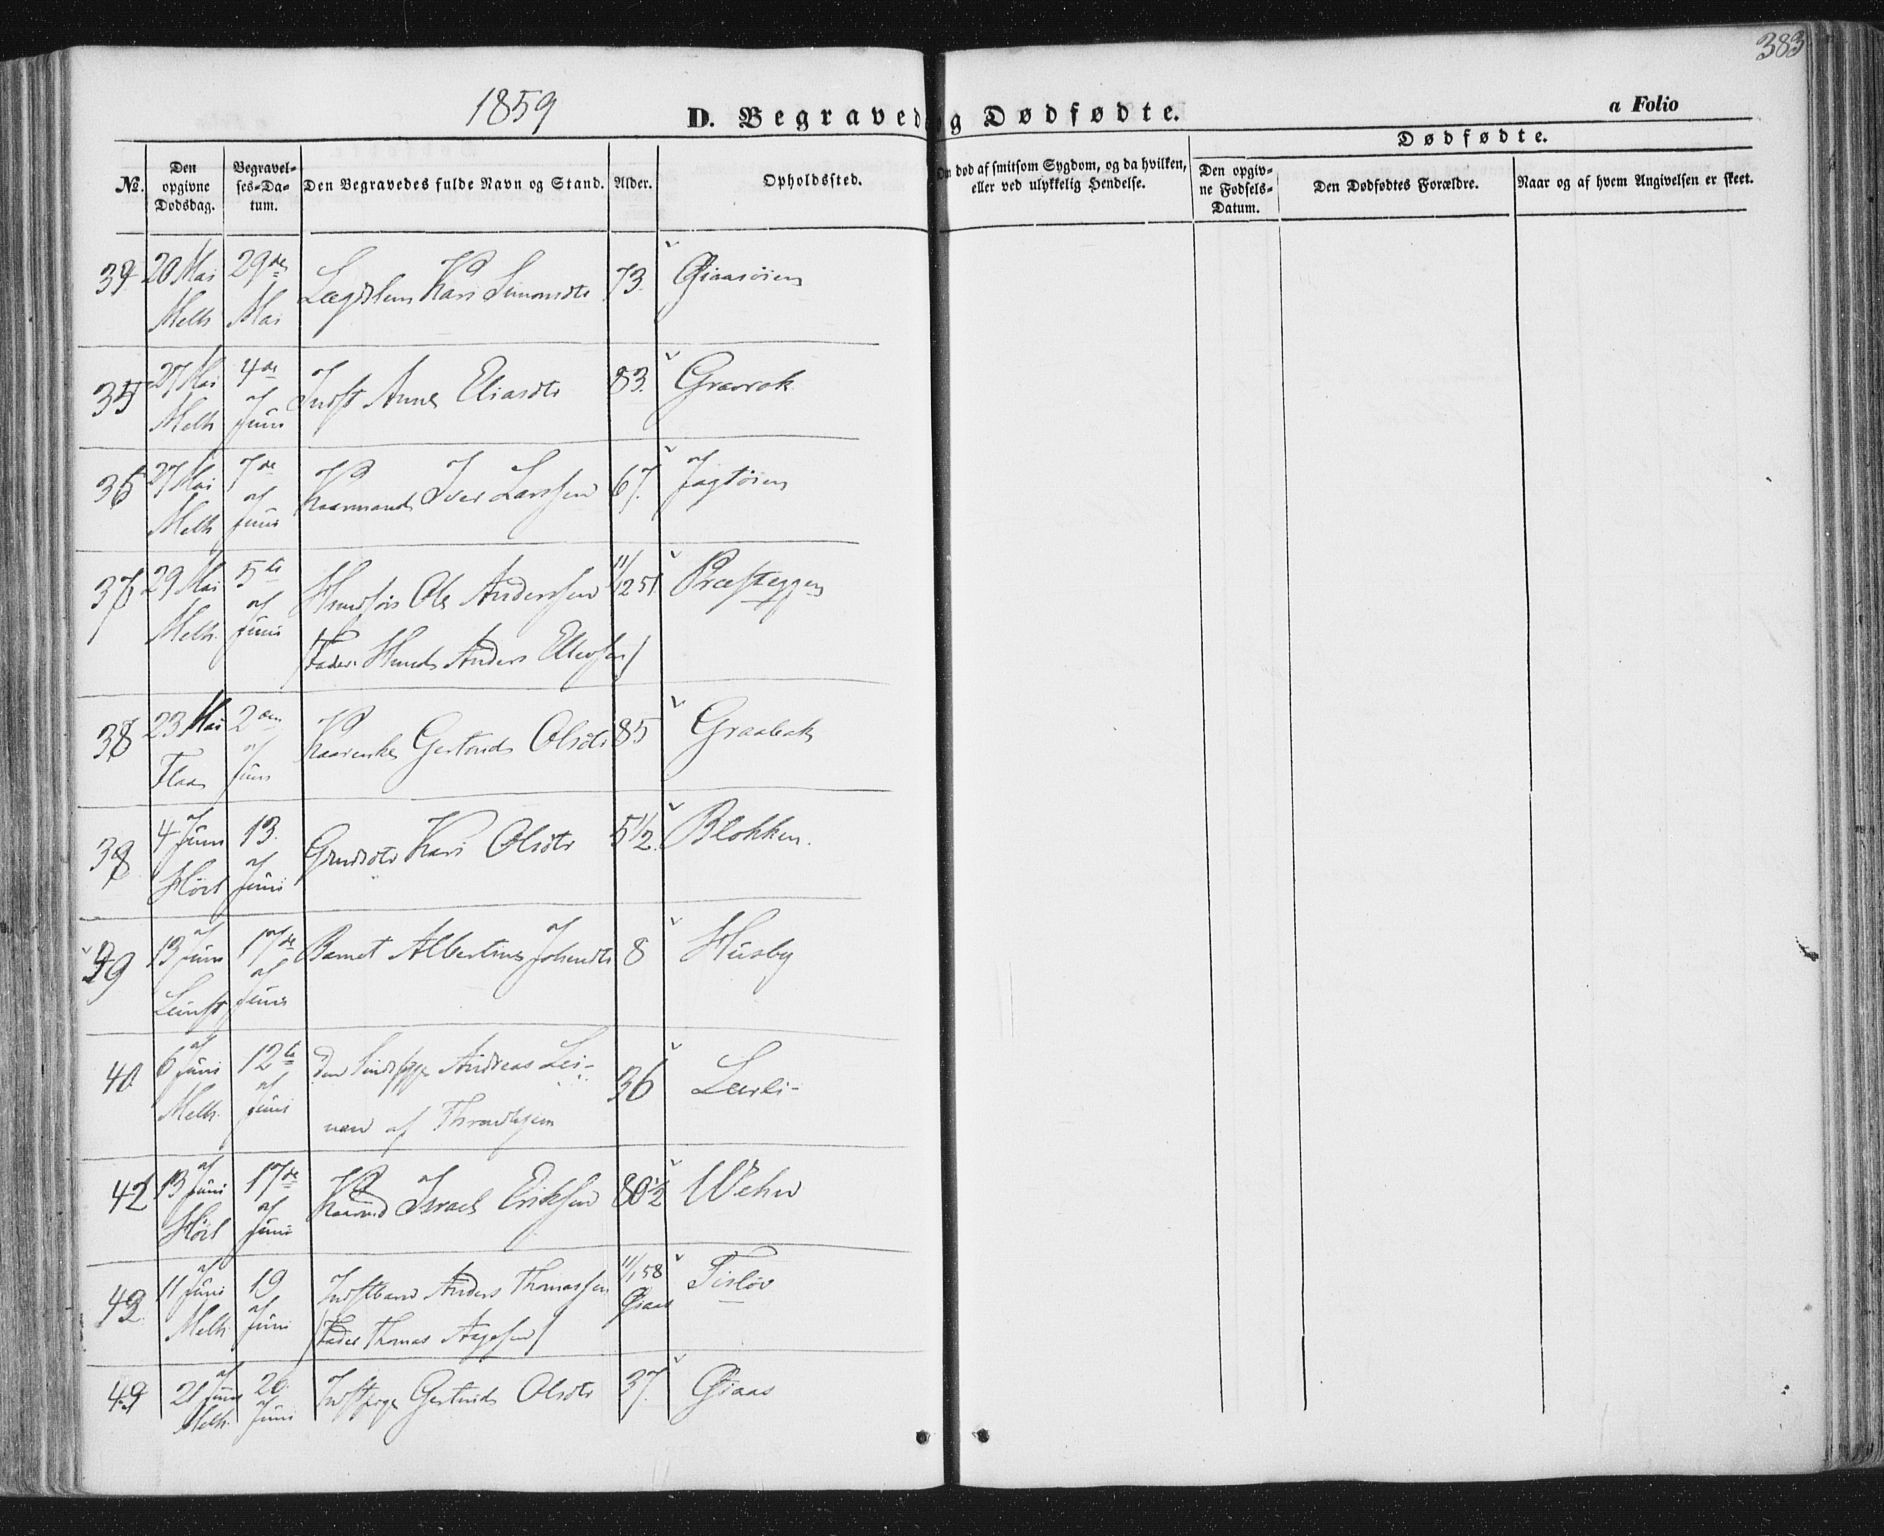 383
1859
D. Begravede og Dødfødte.
a Folio
Dødfødte.
No.
Den opgivne Dødsdag.
Begravelses-Datum.
Den Begravedes fulde Navn og Stand.
Alder.
Opholdssted.
Om død af smitsom Sygdom, og da hvilken, eller ved ulykkelig Hendelse.
Den opgivne Fødsels-Datum.
Den Dødfødtes Forældre.
Naar og af hvem Angivelsen er skeet.
20 Mai Melh 29de Mai Kari Simonsdtr 73. Gjaasøien
35 27 Mai Melh 4de Juni Indst Anne Eliasdtr 83. Gravrok
36 27 Mai Melh 7de Juni Kaarmand Iver Larssen 67. Jagtøien
37 29 Mai Melh. 5te Juni Ole Anderssen 11/12 51 Præsteggen
(Fader: Anders Ellevsen)
38 23 Mai Flaa 2den Juni Kaarenke Gertrud Olsdtr 85 Graabak
4 Juni Hørl 13. Juni Grmdsdtr Kari Olsdtr 5 1/2. Blokken.
39 13 Juni Leinst 17de Juni Barnet Albertine Johnsdtr 8 Husby
40. 6 Juni Melh. 12te Juni Andreas Lei-
nan af Throndhjem 36 Lerli-
42 13 Juni Hørl 17de Juni Kaarmd Israel Eriksen 80 1/2
11 Juni Melh. 19 Juni Indstbarn Anders Thomassen 11/1 58 Gjaas
(Fader Thomas Aagesen)
21 Juni Melh. 26. Juni Gertrud Olsdtr 37. Gjaas